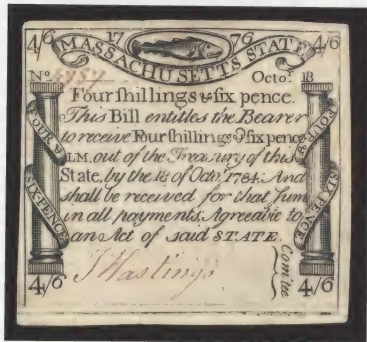 4/6 17 76 4/6
MASSACHUSETTS STATE
No. Octo: 18
Four shillings & six pence.
This Bill entitles the Bearer
to receive Four shillings & six pence
L.M. out of the Treasury of this
State, by the 18 of Octo. 1784. And
shall be received for that Sum
in all payments, Agreeable to
an Act of said STATE.
FOUR &
SIX-PENCE
FOUR &
SIX PENCE
J Hastings
Comtee
4/6 4/6